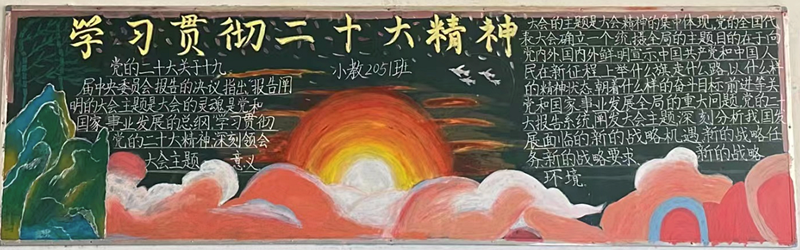 学习贯彻二十大精神
小教2051班
党的二十大关于十九
届中央委员会报告的决议指出,报告阐
明的大会主题是大会的灵魂,是党和
国家事业发展的总纲。学习贯彻
党的二十大精神,深刻领会
大会主题 意义
大会的主题是大会精神的集中体现,党的全国代
表大会确立一个统揽全局的主题目的在于向
党内外国内外鲜明宣示中国共产党和中国人
民在新征程上举什么旗走什么路,以什么样
的精神状态,朝着什么样的奋斗目标前进等关
党和国家事业发展全局的重大问题,党的二十
大报告系统阐发大会主题深刻分析我国发
展面临的新的战略机遇新的战略任
务,新的战略要求 新的战略
环境.